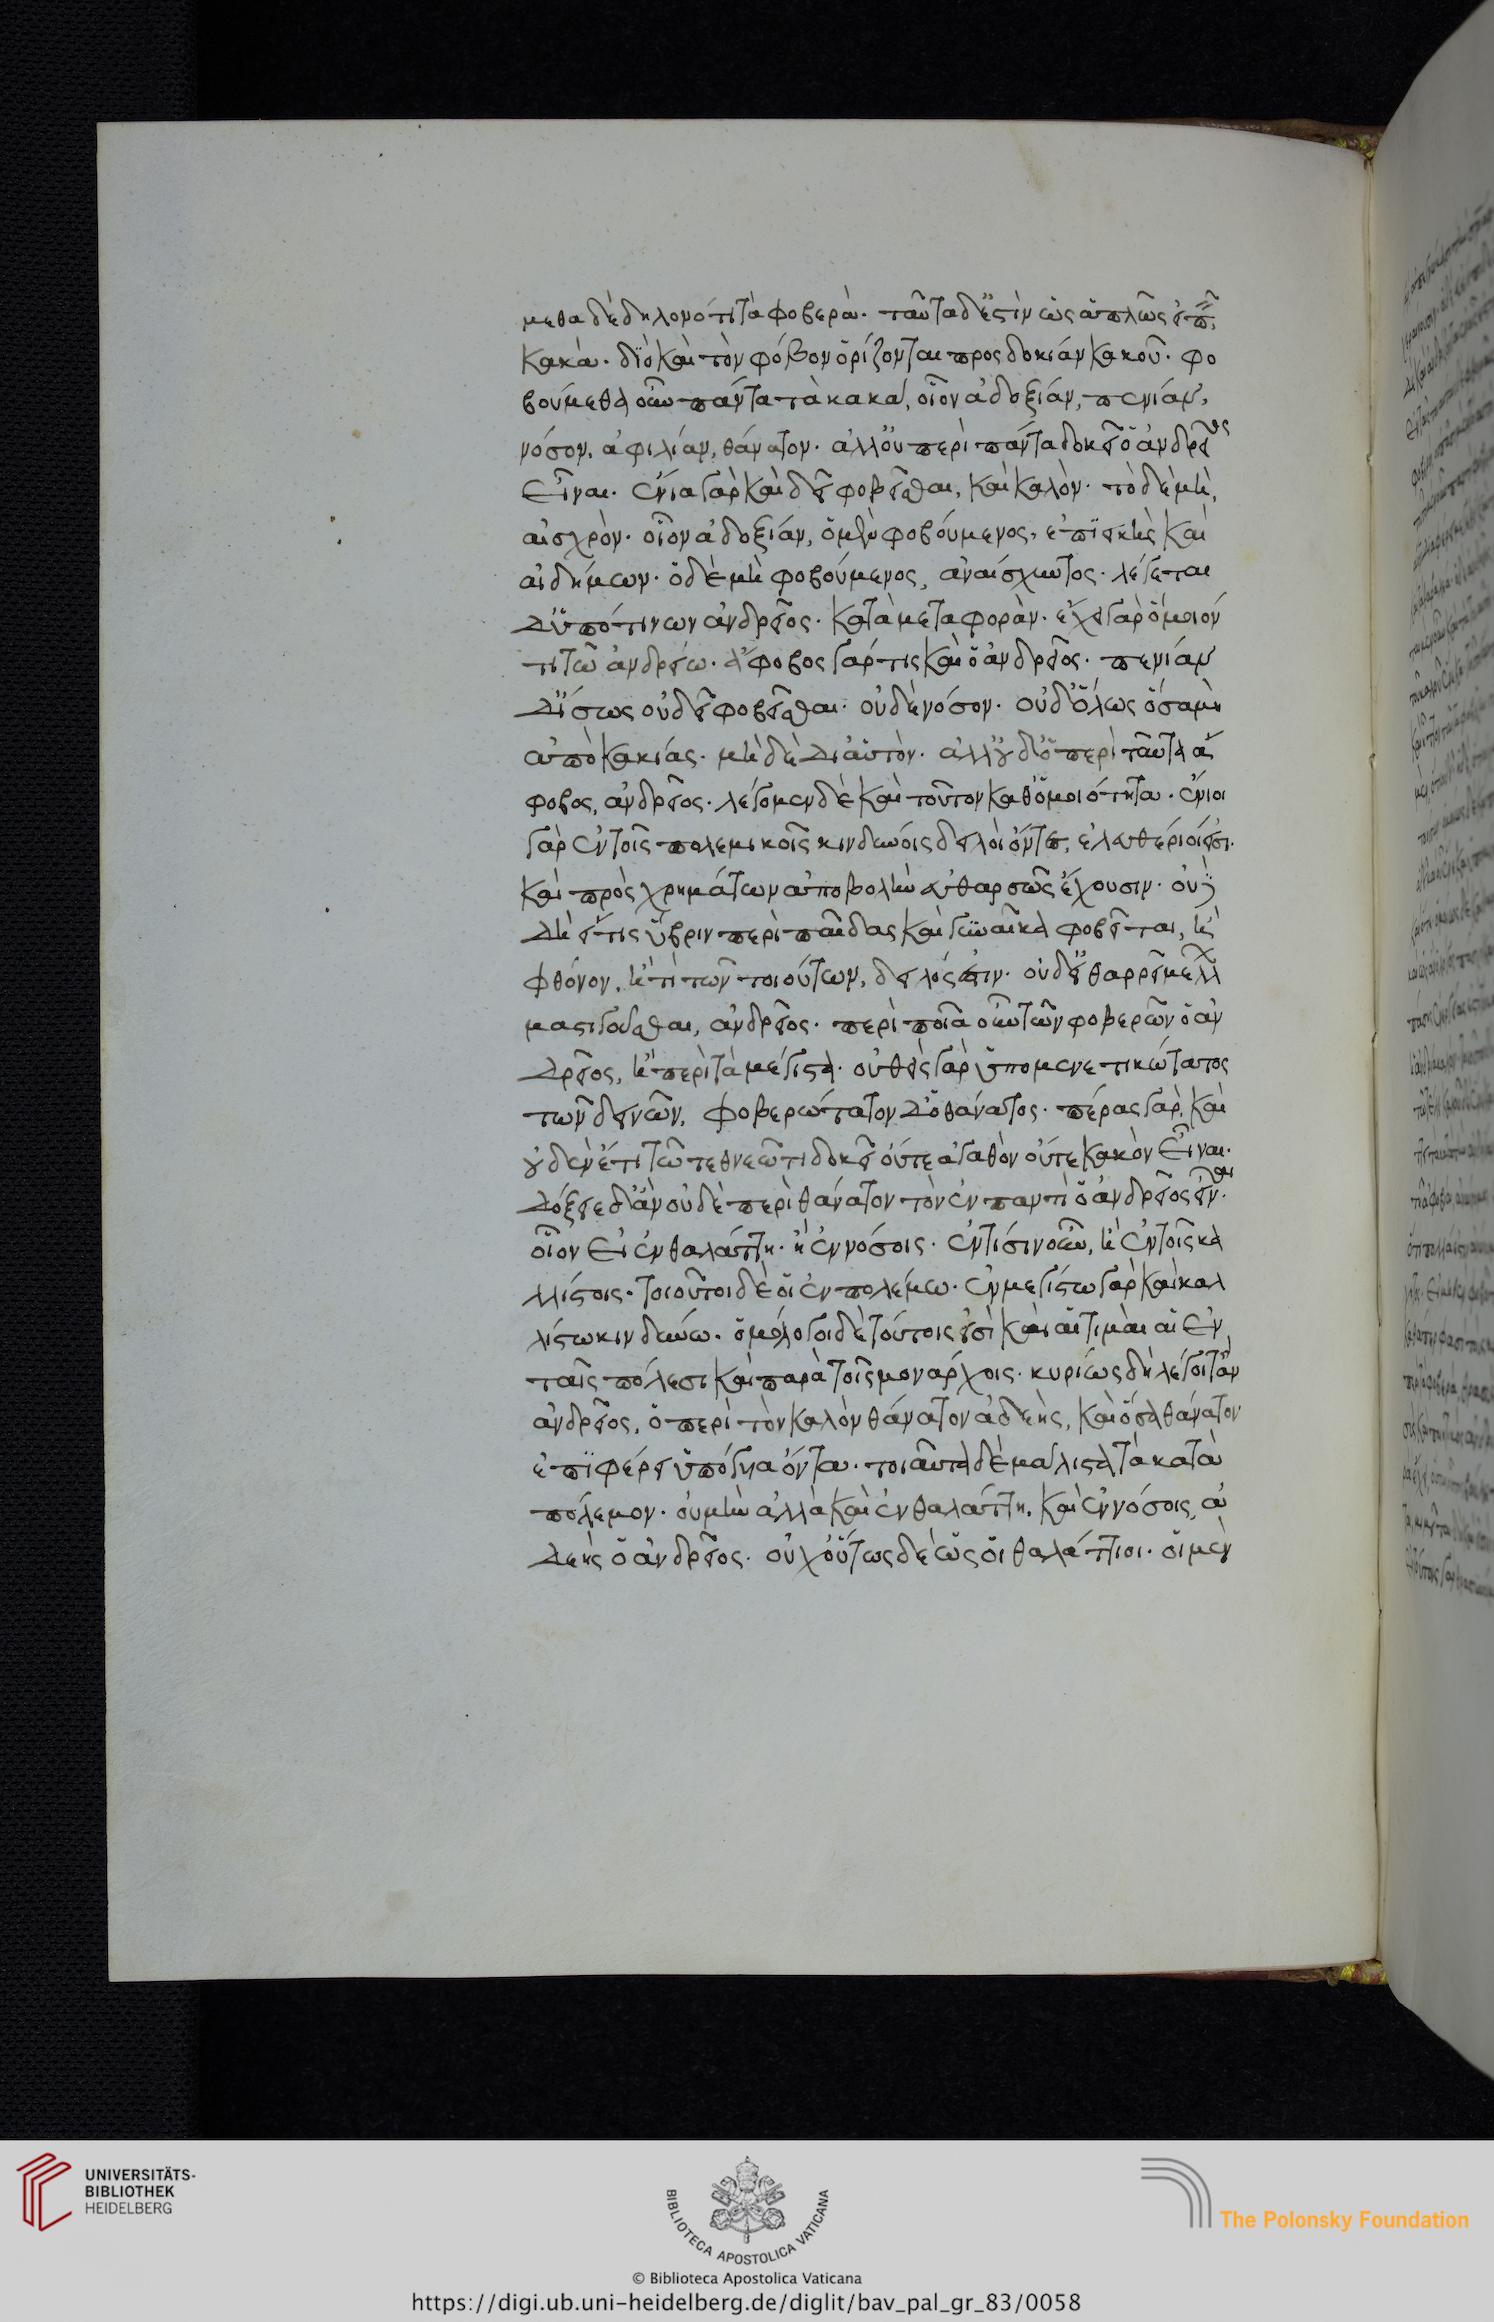 μεθα δὲ δηλονότι τὰ φοβερὰ. ταῦτα δ' ἐστὶν ὡς ἁπλῶς εἰπεῖν
κακὰ. διὸ καὶ τὸν φόβον ὁρίζονται προσδοκίαν κακοῦ. φο
βούμεθα οὖν πάντα τὰ κακὰ, οἷον ἀδοξίαν, πενίαν,
νόσον, ἀφιλίαν, θάνατον. ἀλλ' οὐ περὶ πάντα δοκεῖ ὁ ἀνδρεῖος
εἶναι. ἔνια γὰρ καὶ δεῖ φοβεῖσθαι, καὶ καλὸν. τὸ δὲ μὴ,
αἰσχρὸν. οἷον ἀδοξίαν, ὁ μὲν φοβούμενος, ἐπιεικὴς καὶ
αἰδήμων. ὁ δὲ μὴ φοβούμενος, ἀναίσχυντος. λέγεται
δ' ὑπό τινων ἀνδρεῖος. κατὰ μεταφορὰν. ἔχει γὰρ ὅμοιόν
τι τῶ ἀνδρείω. ἄφοβος γάρ τις καὶ ὁ ἀνδρεῖος. πενίαν
δ' ἴσως οὐ δεῖ φοβεῖσθαι. οὐδὲ νόσον. οὐδ' ὅλως ὅσα μὴ
ἀπὸ κακίας. μὴ δὲ δι' αὑτὸν. ἀλλ' οὐδ' ὁ περὶ ταῦτα ἄ
φοβος, ἀνδρεῖος. λέγομεν δὲ καὶ τοῦτον καθ' ὁμοιότητα. ἔνιοι
γὰρ ἐν τοῖς πολεμικοῖς κινδύνοις δειλοὶ ὄντες, ἐλευθέριοί εἰσι.
καὶ πρὸς χρημάτων ἀποβολὴν εὐθαρσῶς ἔχουσιν. οὐ
δὴ εἴ τις ὕβριν περὶ παῖδας καὶ γυναῖκα φοβεῖται, ἢ
φθόνον, ἤ τι τῶν τοιούτων, δειλός ἐστιν. οὐδ' εἰ θαρρεῖ μέλλων
μαστιγοῦσθαι, ἀνδρεῖος. περὶ ποῖα οὖν τῶν φοβερῶν ὁ ἀν
δρεῖος, ἢ περὶ τὰ μέγιστα. οὐθεὶς γὰρ ὑπομενετικώτατος
τῶν δεινῶν, φοβερώτατον δ' ὁ θάνατος. πέρας γὰρ, καὶ
οὐδὲν ἔτι τῶ τεθνεῶτι δοκεῖ οὔτε ἀγαθὸν οὔτε κακὸν εἶναι.
δόξειε δ' ἂν οὐδὲ περὶ θάνατον τὸν ἐν παντὶ ὁ ἀνδρεῖος εἶναι.
οἷον εἰ ἐν θαλάττη. ἢ ἐν νόσοις. ἐν τίσιν οὖν, ἢ ἐν τοῖς κα
λλίστοις. τοιοῦτοι δὲ οἱ ἐν πολέμω. ἐν μεγίστω γὰρ καὶ καλ
λίστω κινδύνω. ὁμόλογοι δὲ τούτοις εἰσὶ καὶ αἱ τιμαὶ αἱ ἐν
ταῖς πόλεσι καὶ παρὰ τοῖς μονάρχοις. κυρίως δὴ λέγοιτ' ἂν
ἀνδρεῖος, ὁ περὶ τὸν καλὸν θάνατον ἀδεὴς, καὶ ὅσα θάνατον
ἐπιφέρει ὑπόγυα ὄντα. τοιαῦτα δὲ μάλιστα τὰ κατὰ
πόλεμον. οὐ μὴν ἀλλὰ καὶ ἐν θαλάττη. καὶ ἐν νόσοις, ἀ
δεὴς ὁ ἀνδρεῖος. οὐχ οὕτως δὲ ὡς οἱ θαλάττιοι. οἱ μὲν
UNIVERSITÄTS-
BIBLIOTHEK
HEIDELBERG
BIBLIOTECA APOSTOLICA VATICANA
The Polonsky Foundation
© Biblioteca Apostolica Vaticana
https://digi.ub.uni-heidelberg.de/diglit/bav_pal_gr_83/0058